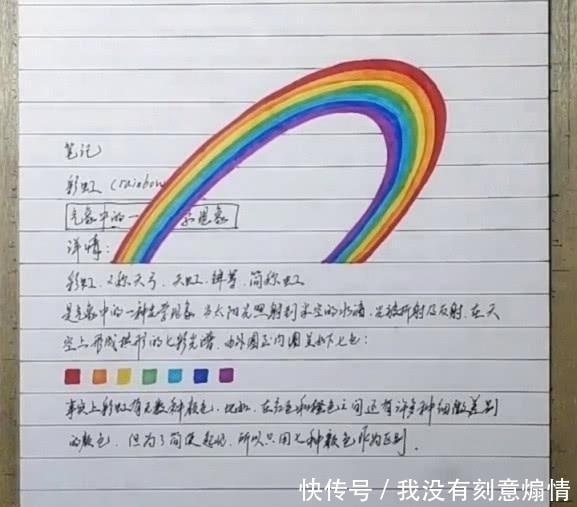 笔记
彩虹 (rainbow
气象中的一 学现象
详情:
彩虹、又称天弓、天虹、绛等,简称虹
是气象中的一种光学现象,当太阳光照射到半空的水滴,光被折射及反射,在天
空上形成拱形的七彩光谱,由外圈至内圈呈如下七色:
事实上彩虹有无数种颜色,比如,在红色和橙色之间还有许多种细微差别
的颜色,但为了简便起见,所以只用七种颜色作为区别.
快传号/我没有刻意煽情